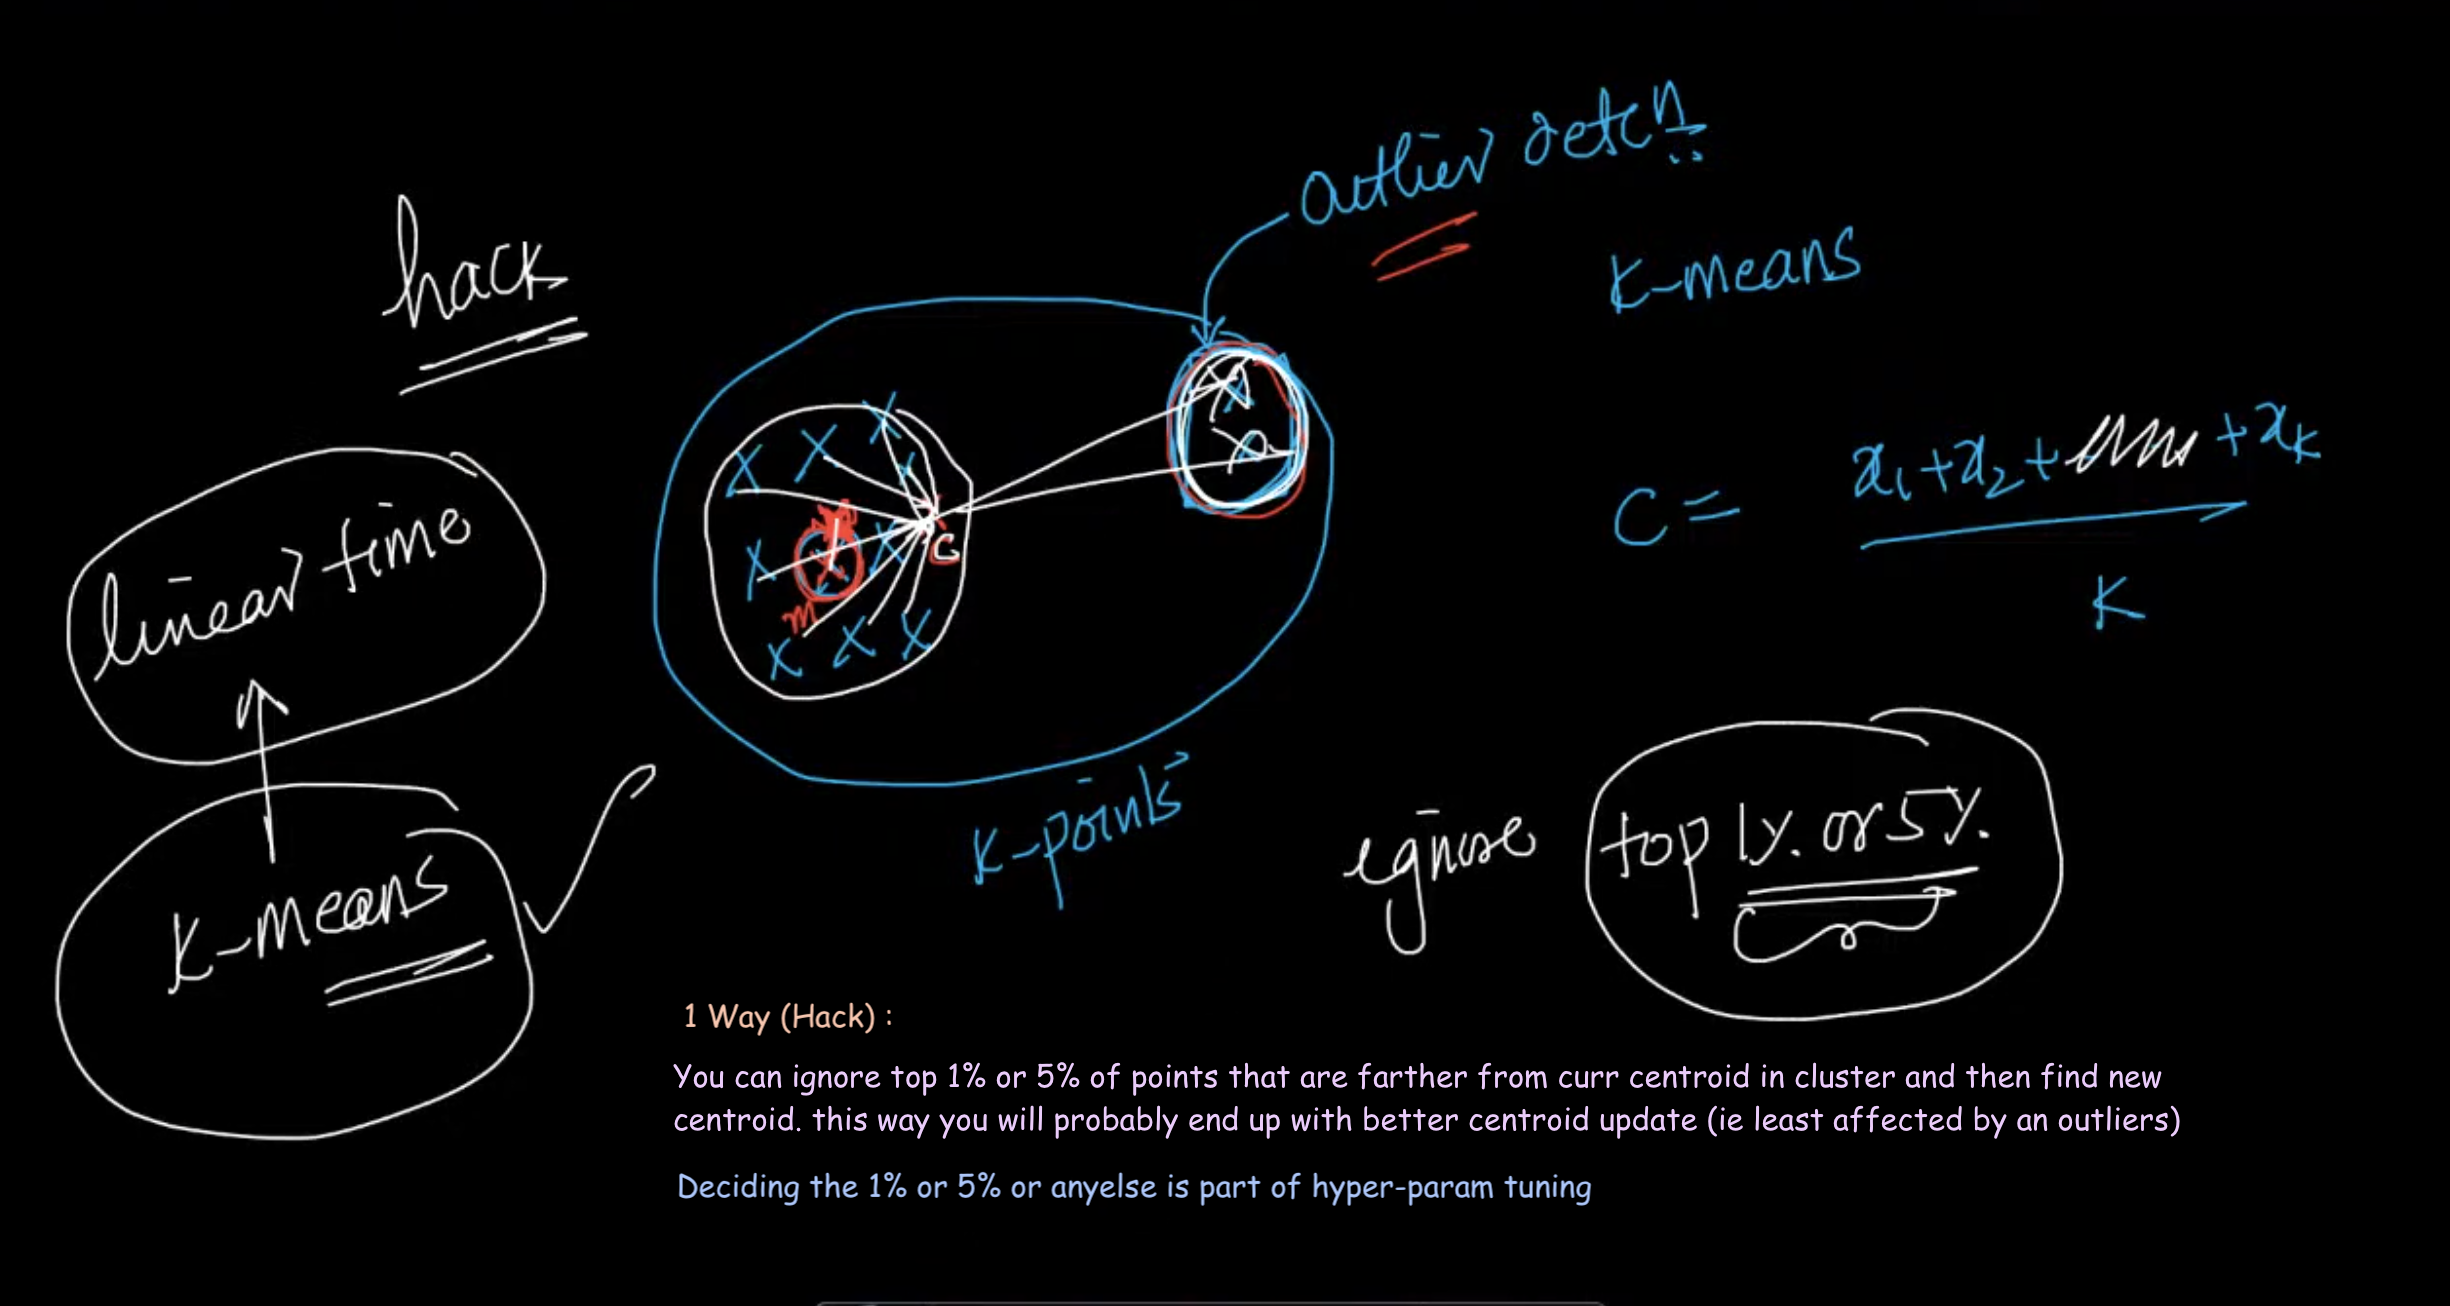 outlier detcn
K-means
hack
C = x1+x2+ +xK
K
linear time
C
m
K-points
ignore top 1%. or 5%.
K-means
1 Way (Hack) :
You can ignore top 1% or 5% of points that are farther from curr centroid in cluster and then find new
centroid. this way you will probably end up with better centroid update (ie least affected by an outliers)
Deciding the 1% or 5% or anyelse is part of hyper-param tuning